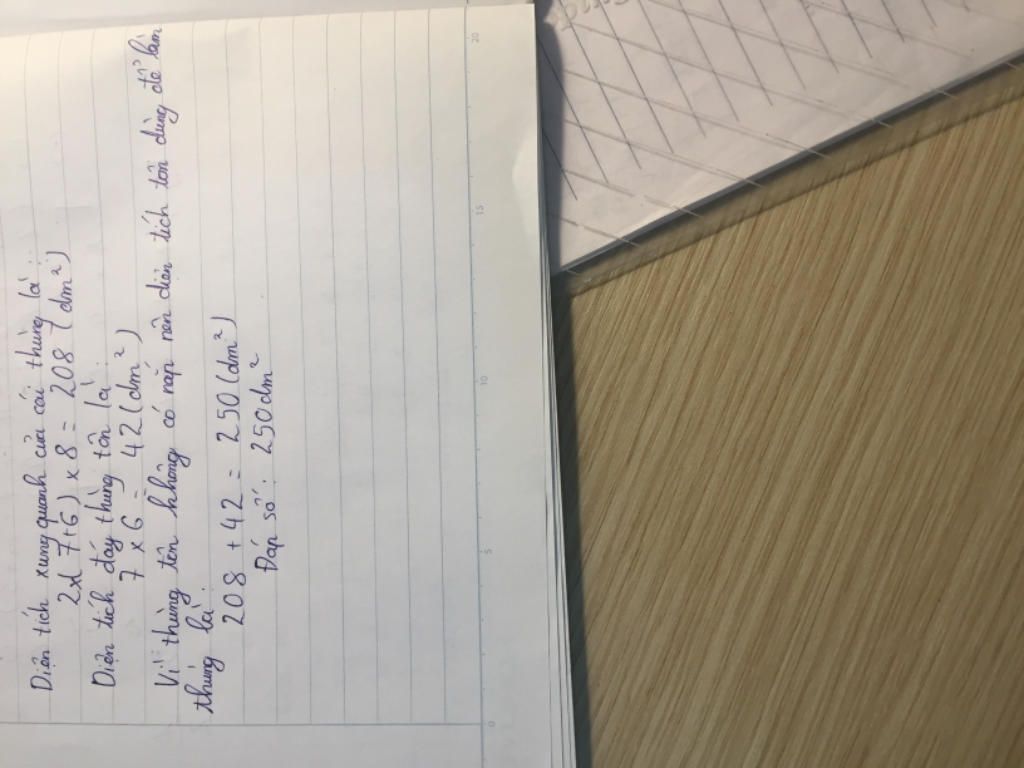 Diện tích xung quanh của cái thùng là:
2x(7+6) x 8 = 208 (dm²)
Diện tích đáy thùng tôn là:
7 x 6 = 42 (dm²)
Vì thùng tôn không có nắp nên diện tích tôn dùng để làm
thùng là:
208 + 42 = 250 (dm²)
Đáp số: 250 dm²
0 5 10 15 20